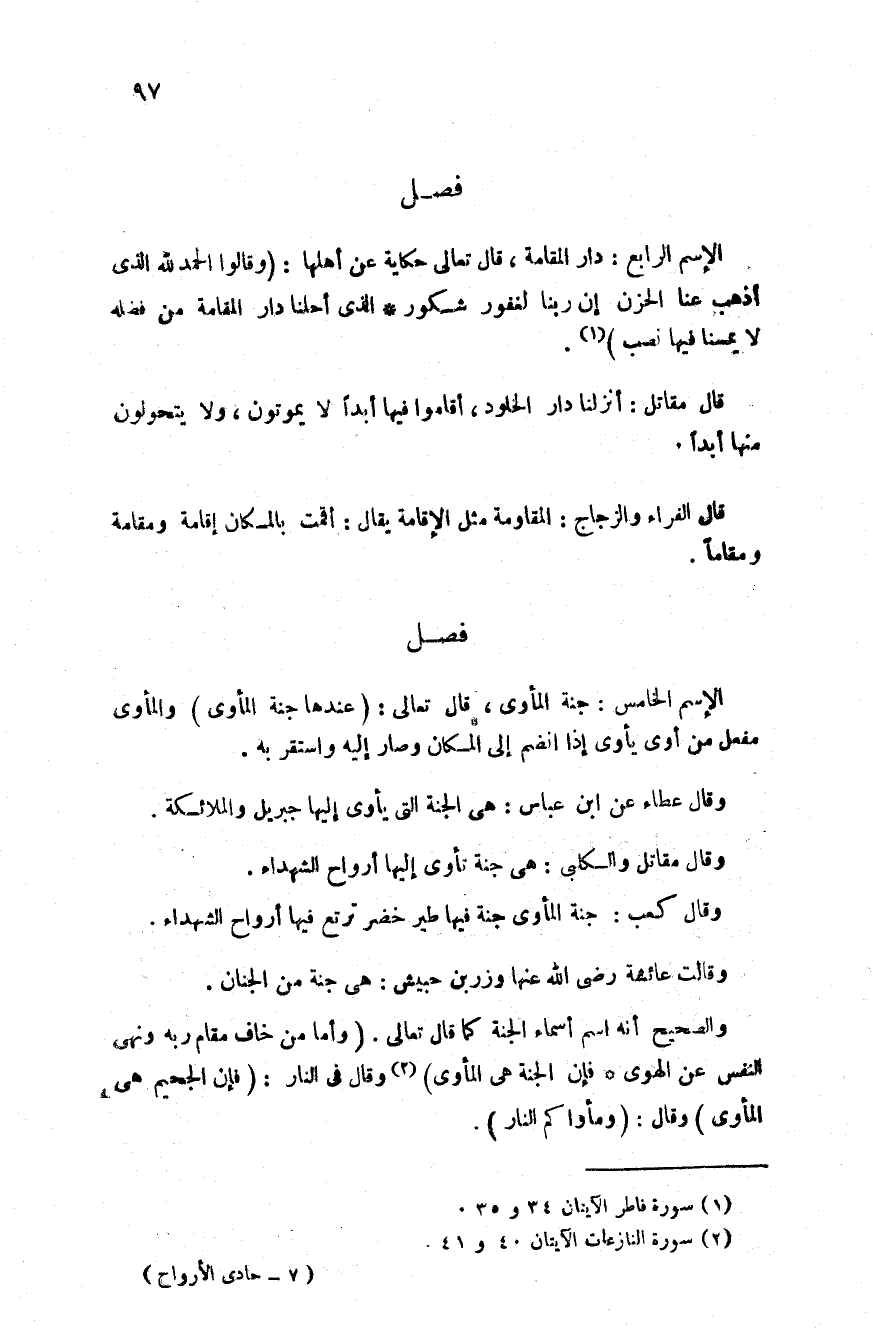 ٩٧
فصـل
الإسم الرابع : دار المقامة ، قال تعالى حكاية عن أهلها : (وقالوا الحمد لله الذى
أذهب عنا الحزن إن ربنا لغفور شـكور * الذى أحلنا دار المقامة من فضله
لا يمسنا فيها نصب )(١) .
قال مقاتل : أنزلنا دار الخلود ، أقاموا فيها أبداً لا يموتون ، ولا يتحولون
منها أبداً .
قال الفراء والزجاج : المقاومة مثل الإقامة يقال : أقمت بالمـكان إقامة ومقامة
ومقاماً .
فصـل
الإسم الخامس : جنة المأوى ، قال تعالى : ( عندها جنة المأوى ) والمأوى
مفعل من أوى يأوى إذا انضم إلى المـكان وصار إليه واستقر به .
وقال عطاء عن ابن عباس : هى الجنة التى يأوى إليها جبريل والملائـكة .
وقال مقاتل والـكلبى : هى جنة تأوى إليها أرواح الشهداء .
وقال كعب : جنة المأوى جنة فيها طير خضر ترتع فيها أرواح الشهداء .
وقالت عائشة رضى الله عنها وزر بن حبيش : هى جنة من الجنان .
والصحيح أنه اسم أسماء الجنة كما قال تعالى . ( وأما من خاف مقام ربه ونهى
النفس عن الهوى * فإن الجنة هى المأوى) (٢) وقال فى النار : ( فإن الجحيم هى
المأوى ) وقال : ( ومأواكم النار ) .
(١) سورة فاطر الآيتان ٣٤ و ٣٥ .
(٢) سورة النازعات الآيتان ٤٠ و ٤١ .
( ٧ ـ حادى الأرواح )